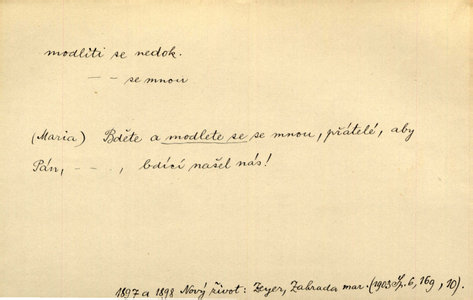 modliti se nedok.
— — se mnou
(Maria) Bděte a modlete se se mnou, přátelé, aby
Pán, — — — , bdící našel nás!
1897 a 1898 Nový život: Zeyer, Zahrada mar. (1903 Sp. 6, 169, 10).